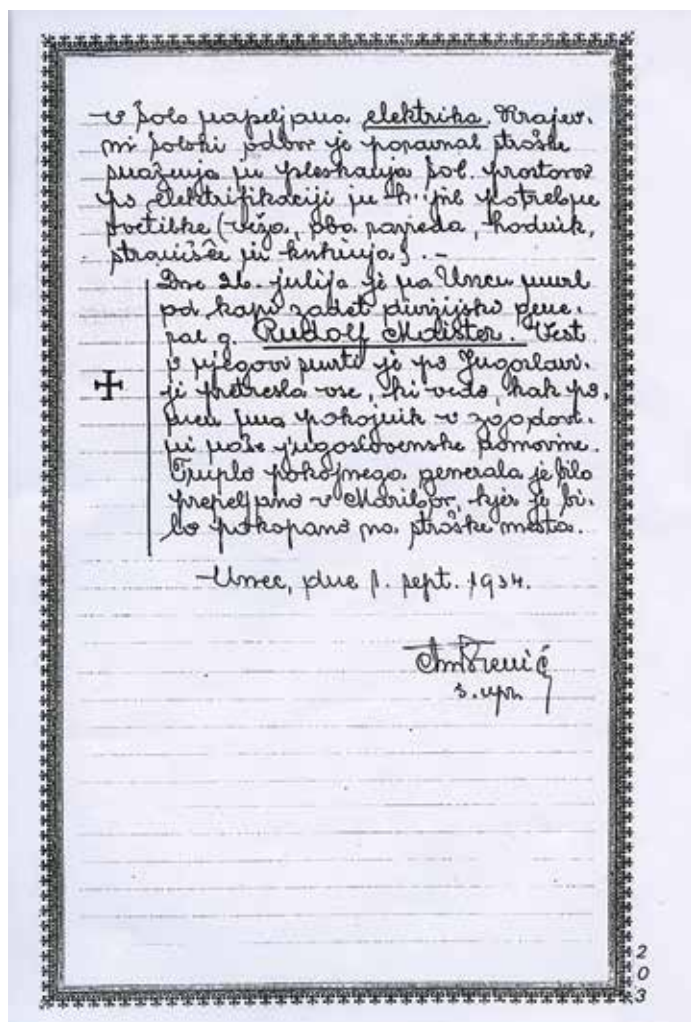 v šolo napeljana elektrika. Krajev-
ni šolski odbor je poravnal stroške
snaženja in pleskanja šol. prostorov
po elektrifikaciji in k. jih potrebne
svetilke (veža, oba razreda, hodnik,
stranišče in kuhinja). –
Dne 26. julija je na Uncu umrl
od kapi zadet divizijski gene-
ral g. Rudolf Maister. Vest
o njegovi smrti je po Jugoslavi-
ji pretresla vse, ki vedo, kak po-
men ima pokojnik v zgodovi-
ni naše jugoslovenske domovine.
Truplo pokojnega generala je bilo
prepeljano v Maribor, kjer je bi-
lo pokopano na stroške mesta.
Unec, dne 1. sept. 1934.
š. upr.
203